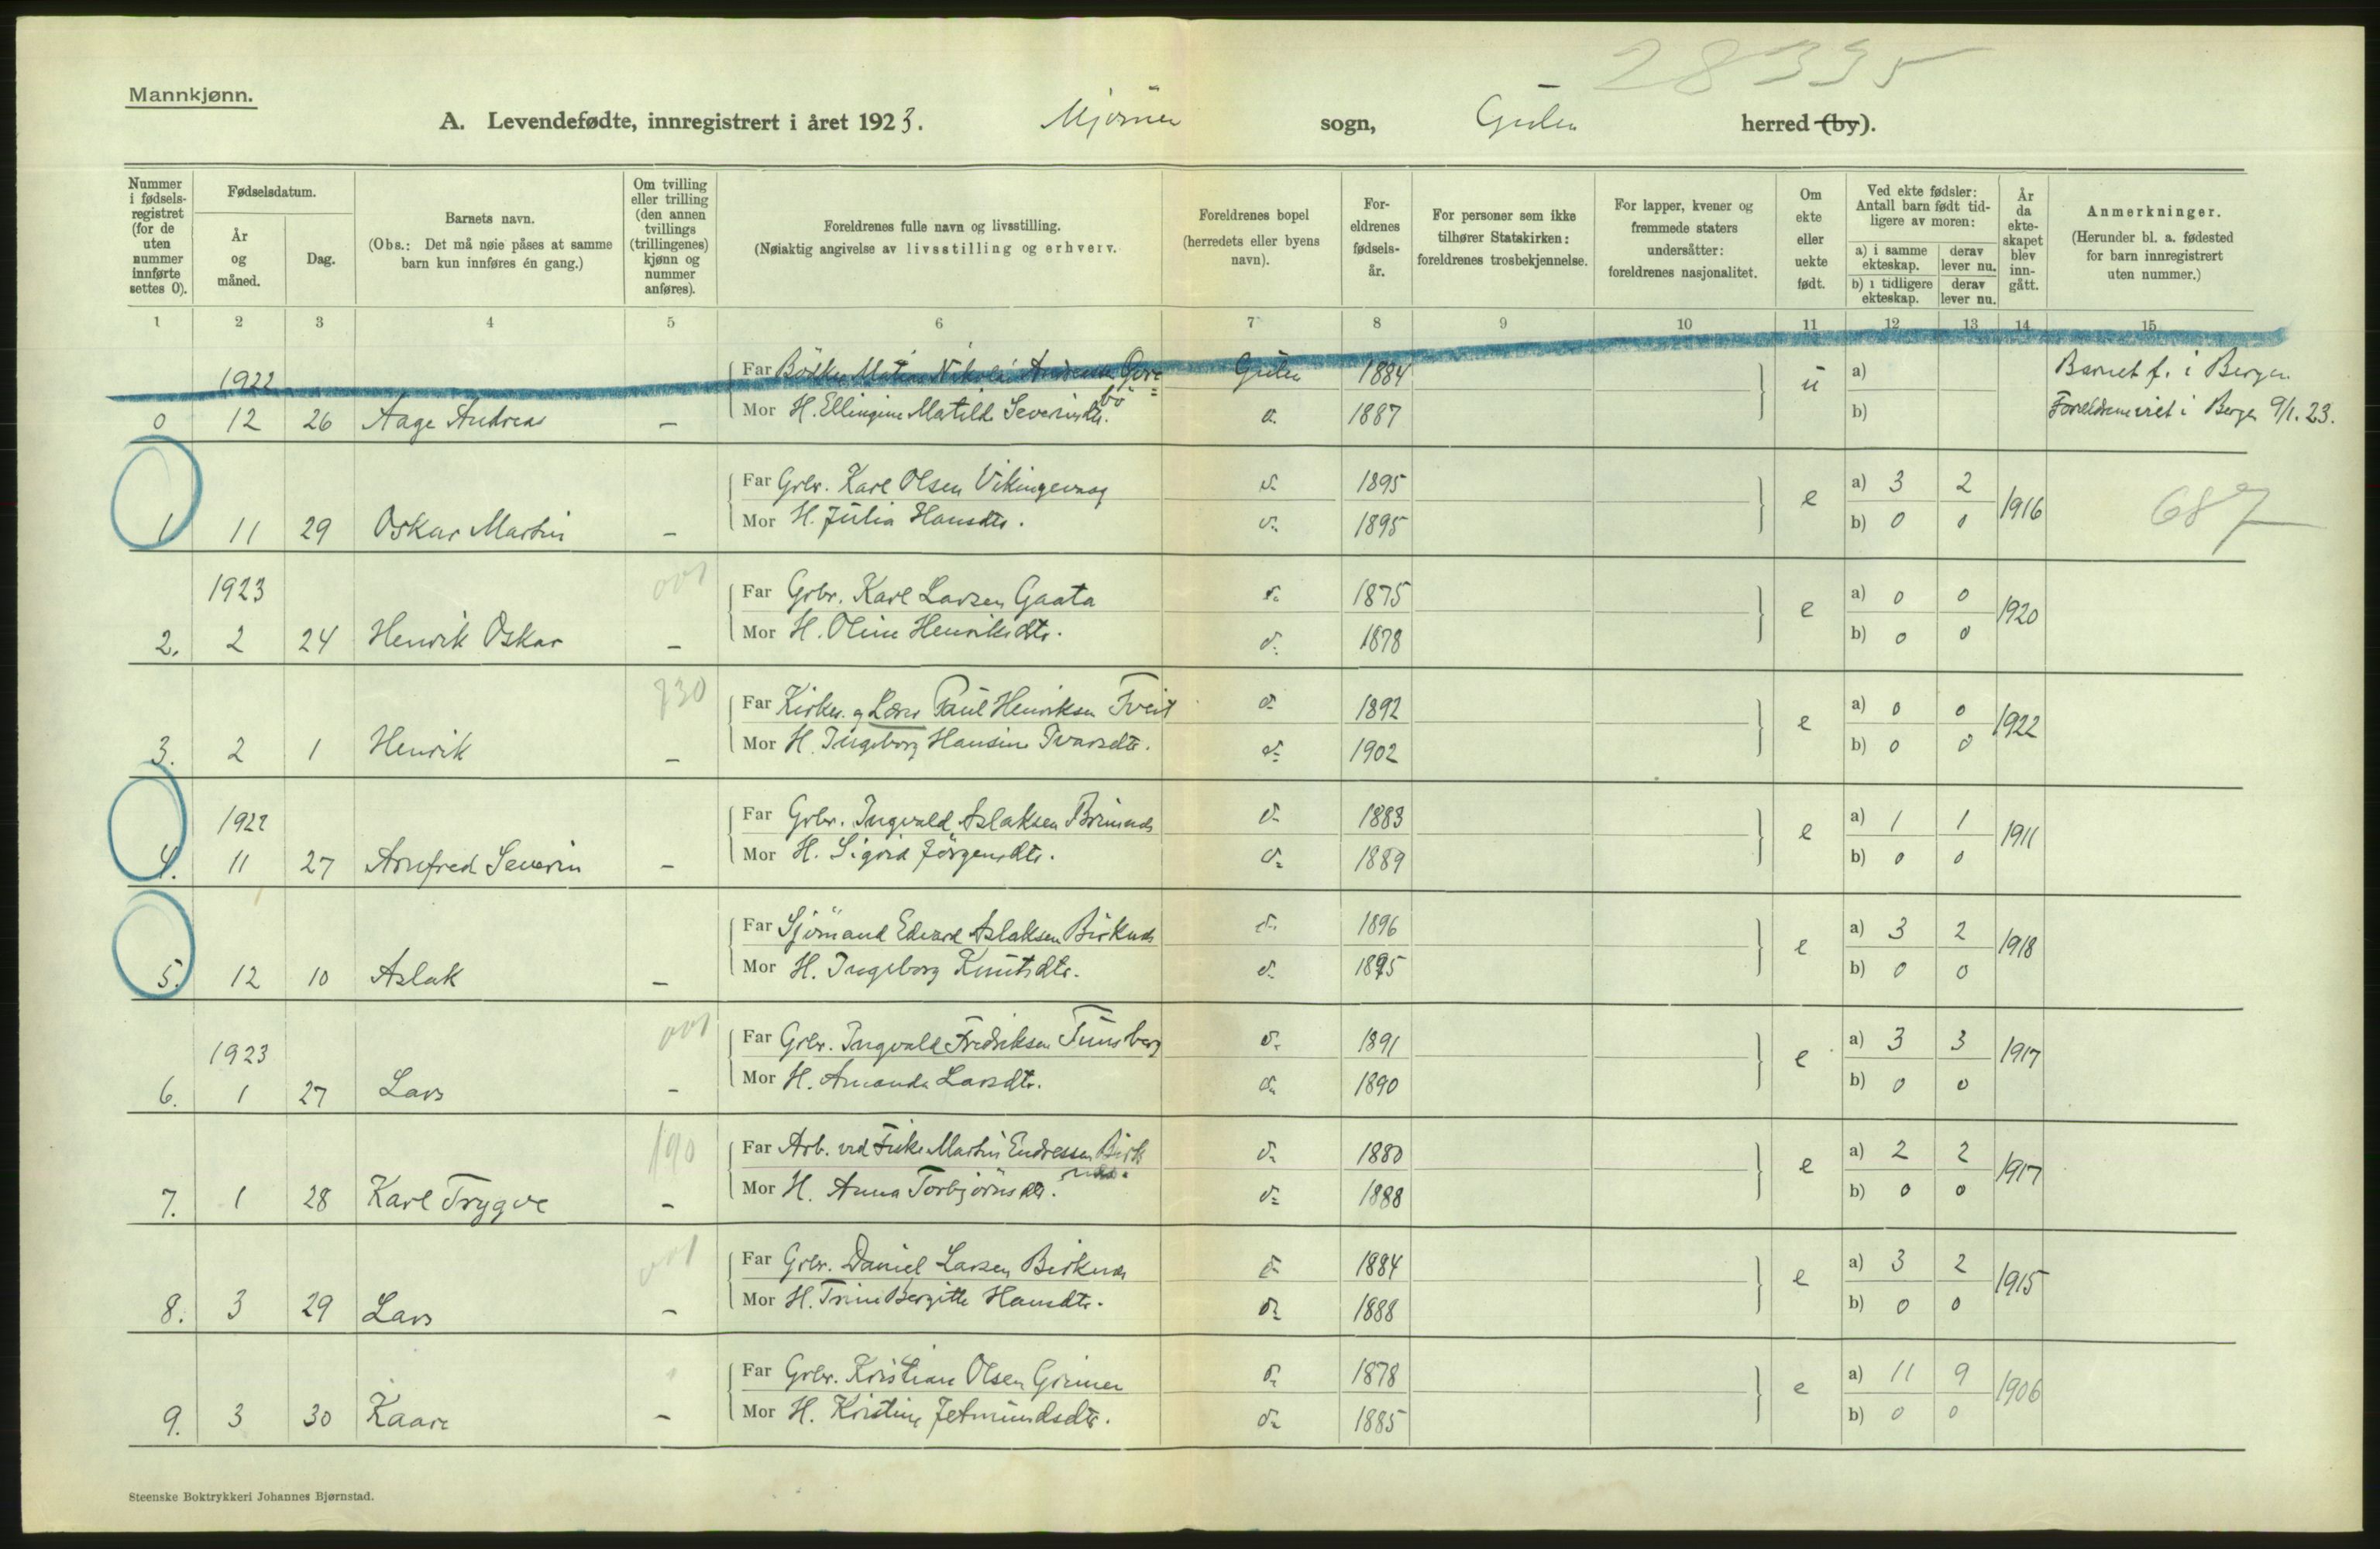 28335
Mannkjønn.
A. Levendefødte, innregistrert i året 1923. Mjømen sogn, Gulen herred (by).
Nummer i fødselsregistret (for de uten nummer innførte settes 0).
Fødselsdatum.
År og måned.
Dag.
Barnets navn.
(Obs.: Det må nøie påses at samme barn kun innføres én gang.)
Om tvilling eller trilling (den annen tvillings (trillingenes) kjønn og nummer anføres).
Foreldrenes fulle navn og livsstilling.
(Nøiaktig angivelse av livsstilling og erhverv.
Foreldrenes bopel (herredets eller byens navn).
Foreldrenes fødselsår.
For personer som ikke tilhører Statskirken: foreldrenes trosbekjennelse.
For lapper, kvener og fremmede staters undersåtter: foreldrenes nasjonalitet.
Om ekte eller uekte født.
Ved ekte fødsler: Antall barn født tidligere av moren:
a) i samme ekteskap. derav lever nu.
b) i tidligere ekteskap. derav lever nu.
År da ekteskapet blev inngått.
Anmerkninger.
(Herunder bl. a. fødested for barn innregistrert uten nummer.)
1 2 3 4 5 6 7 8 9 10 11 12 13 14 15
1922 Far Nikolai Gulen 1884 ü a) Barnet f. i Bergen
0 12 26 Aage Andreas – Mor H. Ellingine Matilde Severinsdtr. d. 1887 b) Foreldrene viet i Bergen 9/1.23.
Far Grbr. Karl Olsen Vikingevaag d. 1895 e a) 3 2 1916 687
1 11 29 Oskar Martin – Mor H. Julia Hansdtr. d. 1895 b) 0 0
1923 001 Far Grbr. Karl Larsen Gaata d. 1875 e a) 0 0 1920
2. 2 24 Henrik Oskar – Mor H. Oline Henriksdtr. d. 1878 b) 0 0
830 Far Kirkes. og Lærer Paul Henriksen Tveit d. 1892 e a) 0 0 1922
3. 2 1 Henrik – Mor H. Ingeborg Hansine Ivarsdtr. d. 1902 b) 0 0
1922 Far Grbr. Ingvald Aslaksen d. 1883 e a) 1 1 1911
4. 11 27 Arnfred Severin – Mor H. Sigrid Jörgensdtr. d. 1889 b) 0 0
Far Sjömand Edvard Aslaksen Birknes d. 1896 e a) 3 2 1918
5. 12 10 Aslak – Mor H. Ingeborg Knutsdtr. d. 1895 b) 0 0
1923 001 Far Grbr. Ingvald Fredriksen Tunsberg d. 1891 e a) 3 3 1917
6. 1 27 Lars – Mor H. Amanda Larsdtr. d. 1890 b) 0 0
190 Far Arb. ved Fiske Martin Endressen Birknes. d. 1880 e a) 2 2 1917
7. 1 28 Karl Trygve – Mor H. Anna Torbjörnsdtr. d. 1888 b) 0 0
001 Far Grbr. Daniel Larsen Birknes d. 1884 e a) 3 2 1915
8. 3 29 Lars – Mor H. Trine Bergitte Hansdtr. d. 1888 b) 0 0
Far Grbr. Kristian Olsen Grinen d. 1878 e a) 11 9 1906
9. 3 30 Kaare – Mor H. Kristine Jetmundsdtr. d. 1885 b) 0 0
Steenske Boktrykkeri Johannes Bjørnstad.